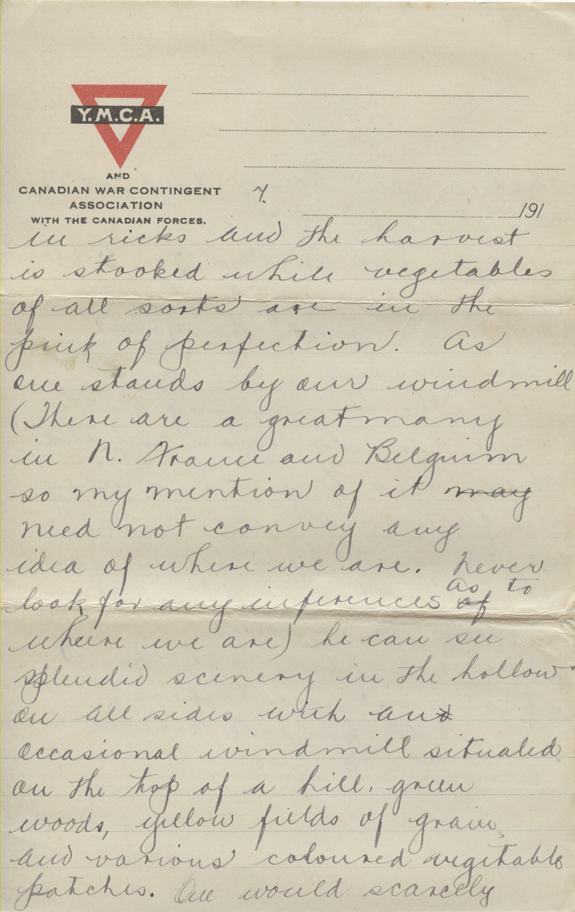 Y.M.C.A.
AND
CANADIAN WAR CONTINGENT
ASSOCIATION
WITH THE CANADIAN FORCES.
7.
191
in ricks and the harvest
is stooked while vegetables
of all sorts are in the
pink of perfection. As
one stands by our windmill
(There are a great many
in N. France and Belgium
so my mention of it may
need not convey any
idea of where we are. Never
look for any inferences of as to
where we are) he can see
splendid scenery in the hollow
on all sides with an
occasional windmill situated
on the top of a hill. green
woods, yellow fields of grain,
and various coloured vegetable
patches. One would scarcely